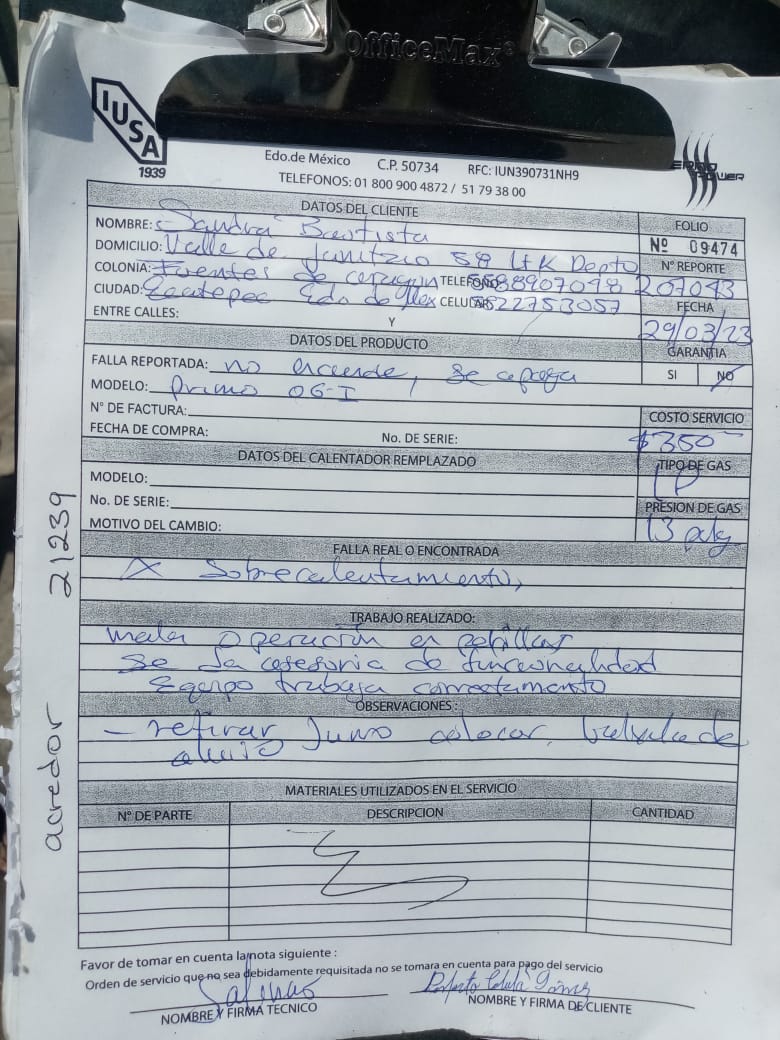 OfficeMax®
IUSA
1939
ERMO POWER
Edo.de México C.P. 50734 RFC: IUN390731NH9
TELEFONOS: 01 800 900 4872 / 51 79 38 00
DATOS DEL CLIENTE
FOLIO
NOMBRE: Sandra Bautista
Nº 09474
DOMICILIO: Valle de Janitzio 58 Lt K Depto
Nº REPORTE
COLONIA: Fuentes de TELEFONO: 5588907048
207043
CIUDAD: Ecatepec Edo de Mex CELULAR: 5522753057
FECHA
ENTRE CALLES: Y
29/03/23
DATOS DEL PRODUCTO
GARANTIA
FALLA REPORTADA: no enciende, se apaga
SI NO
MODELO: Primo 06-I
N° DE FACTURA:
COSTO SERVICIO
FECHA DE COMPRA: No. DE SERIE:
$350
DATOS DEL CALENTADOR REMPLAZADO
TIPO DE GAS
MODELO:
LP
No. DE SERIE:
PRESION DE GAS
MOTIVO DEL CAMBIO:
13 pulg
FALLA REAL O ENCONTRADA
X Sobrecalentamiento,
TRABAJO REALIZADO:
mala operación en perillas
Se da asesoria de funcionalidad
Equipo trabaja correctamente
OBSERVACIONES:
- retirar Jumo colocar valvula de
alivio
MATERIALES UTILIZADOS EN EL SERVICIO
N° DE PARTE DESCRIPCION CANTIDAD
Favor de tomar en cuenta la nota siguiente :
Orden de servicio que no sea debidamente requisitada no se tomara en cuenta para pago del servicio
Salinas
NOMBRE Y FIRMA TECNICO
NOMBRE Y FIRMA DE CLIENTE
acredor 21239